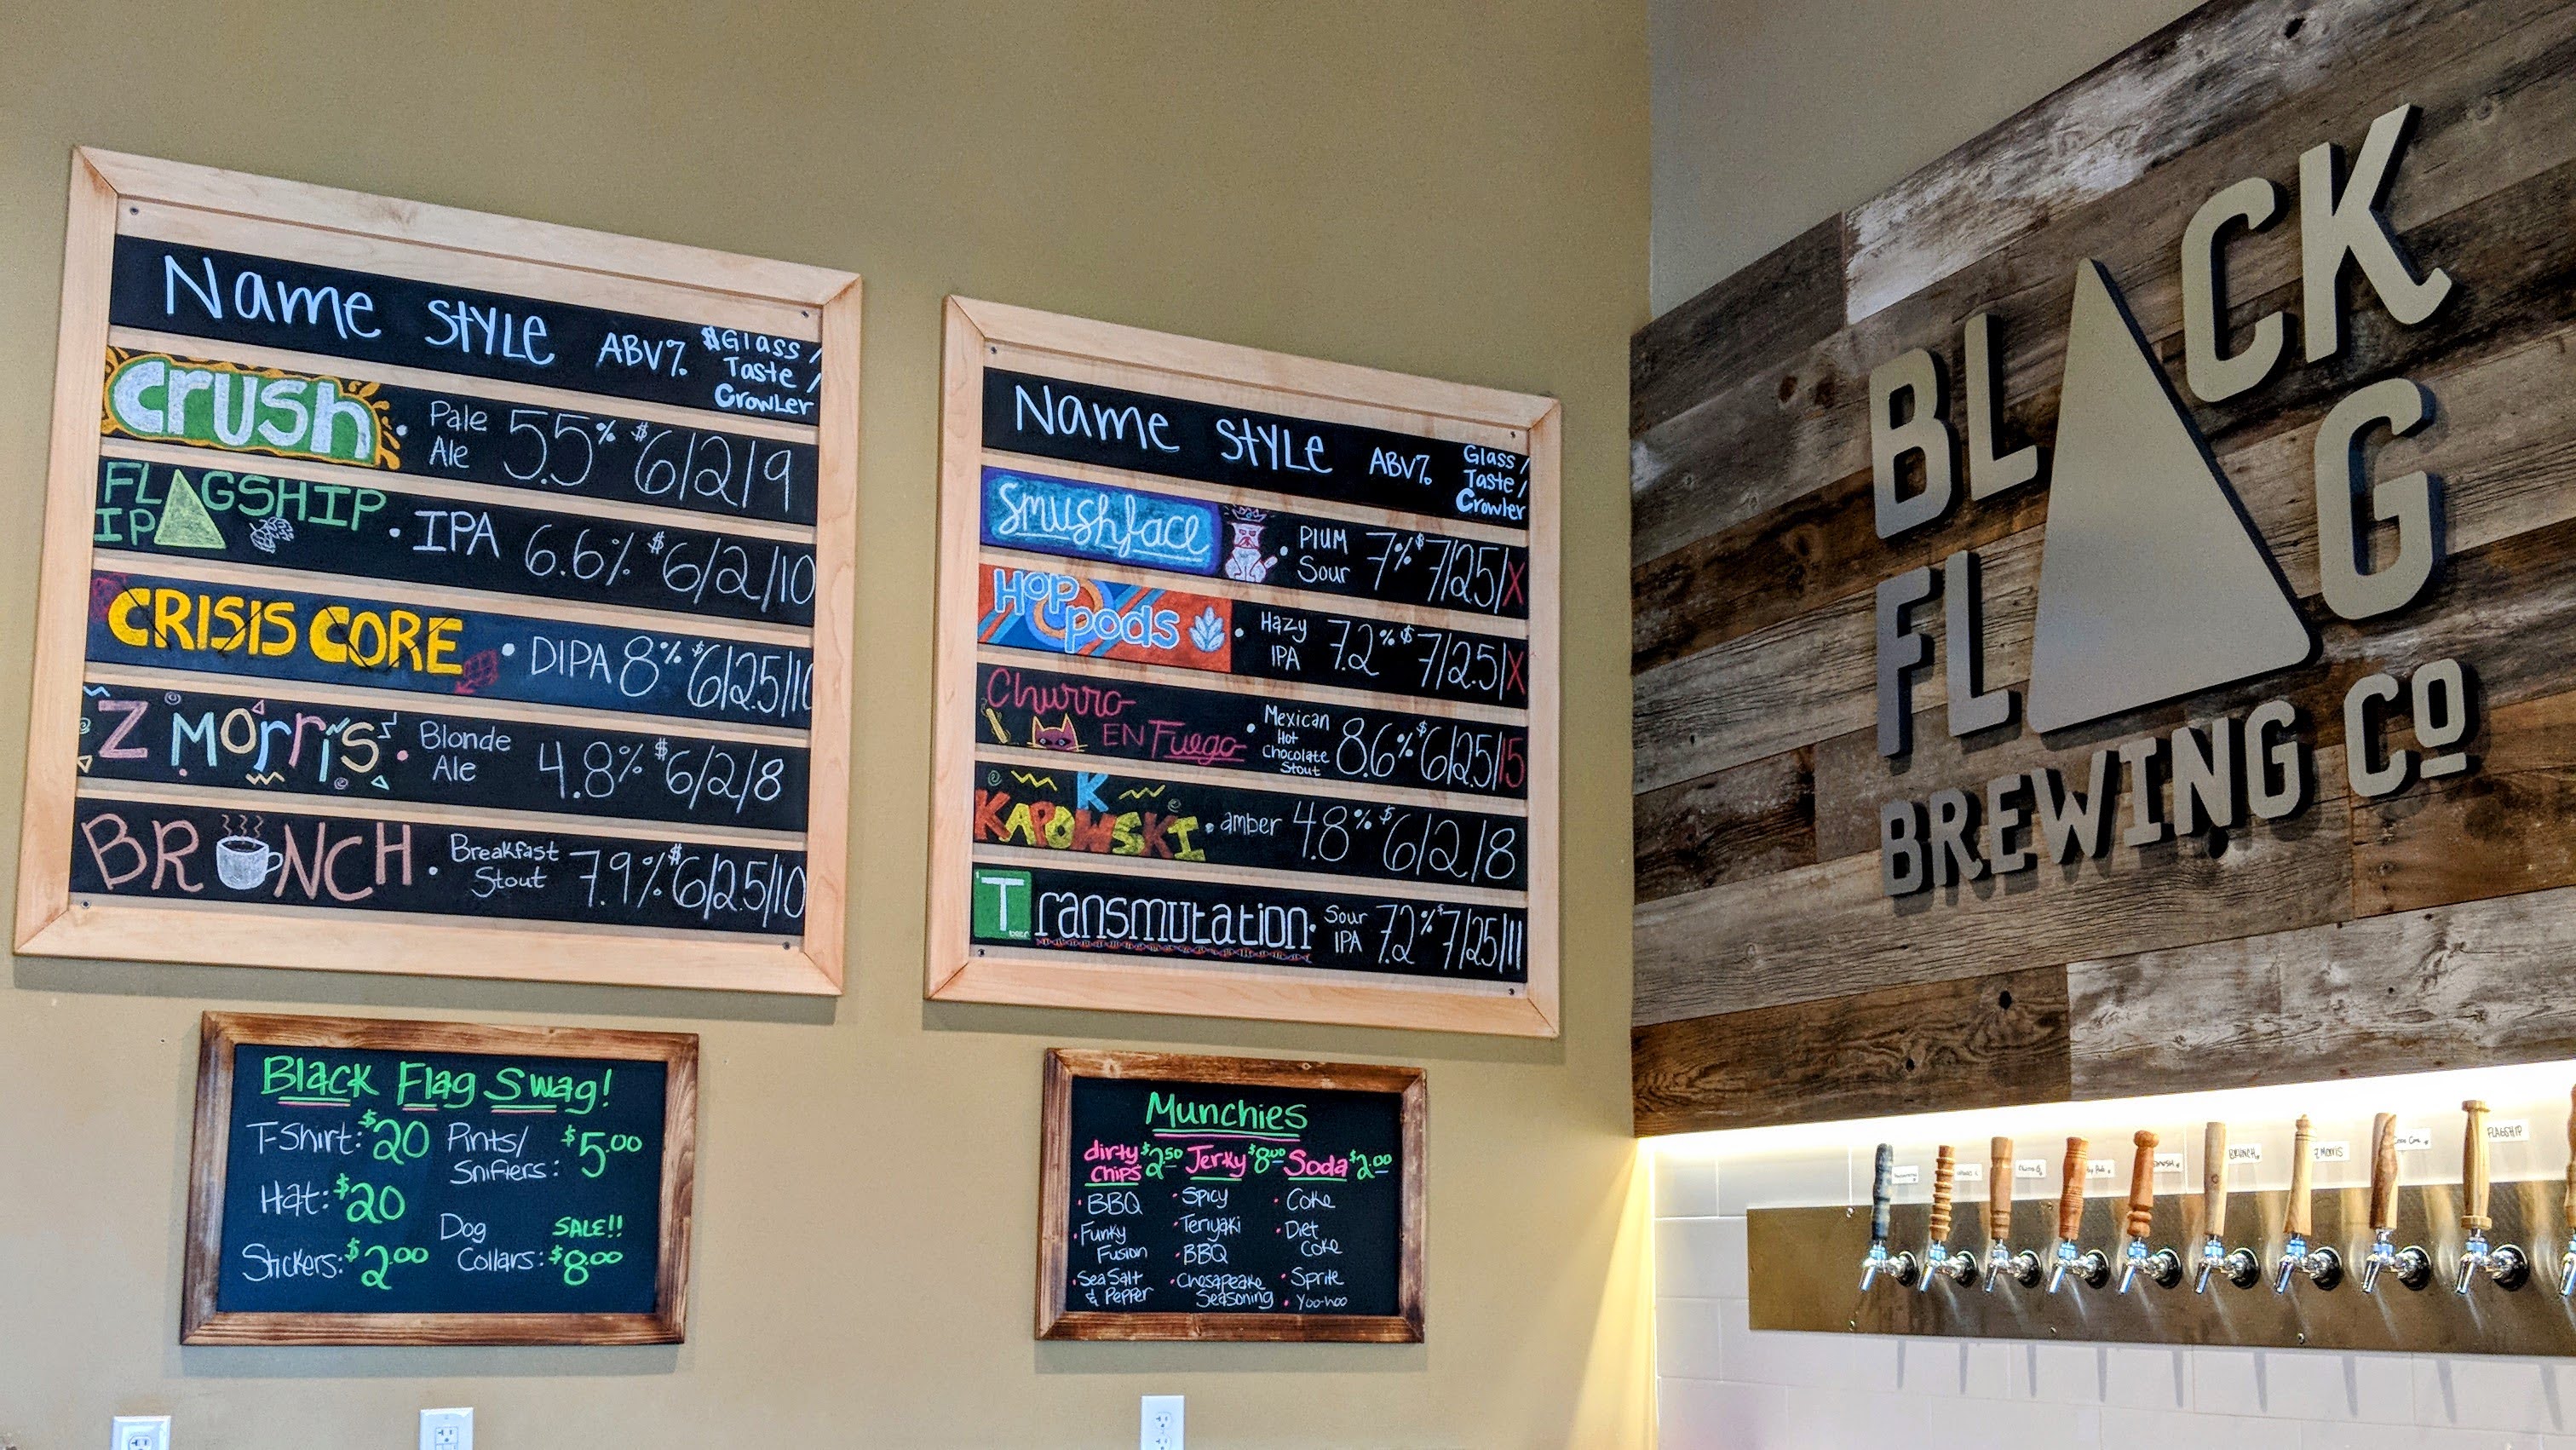 Name Style ABV% $Glass / Taste / Crowler
Crush • Pale Ale 5.5% $6/2/9
FLAGSHIP IPA • IPA 6.6% $6/2/10
CRISIS CORE • DIPA 8% $6/2.5/10
Z MOrris • Blonde Ale 4.8% $6/2/8
BRUNCH • Breakfast Stout 7.9% $6/2.5/10
Name Style ABV% Glass / Taste / Crowler
Smushface • Plum Sour 7% $7/2.5/X
Hop pods • Hazy IPA 7.2% $7/2.5/X
Churro EN Fuego • Mexican Hot Chocolate Stout 8.6% $6/2.5/15
K KAPOWSKI • amber 4.8% $6/2/8
Transmutation • Sour IPA 7.2% $7/2.5/11
beer
BLACK
FLAG
BREWING Co
Black Flag Swag!
T-Shirt: $20 Pints/ Snifiers: $5.00
Hat: $20
Stickers: $2.00 Dog Collars: SALE!! $8.00
Munchies
dirty chips $2.50 Jerky $8.00 Soda $2.00
• BBQ • Spicy • Coke
• Funky Fusion • Teriyaki • Diet Coke
• BBQ
• Sea Salt & Pepper • Chesapeake Seasoning • Sprite
• Yoo-hoo
BRUNCH
Z MORRIS
FLAGSHIP